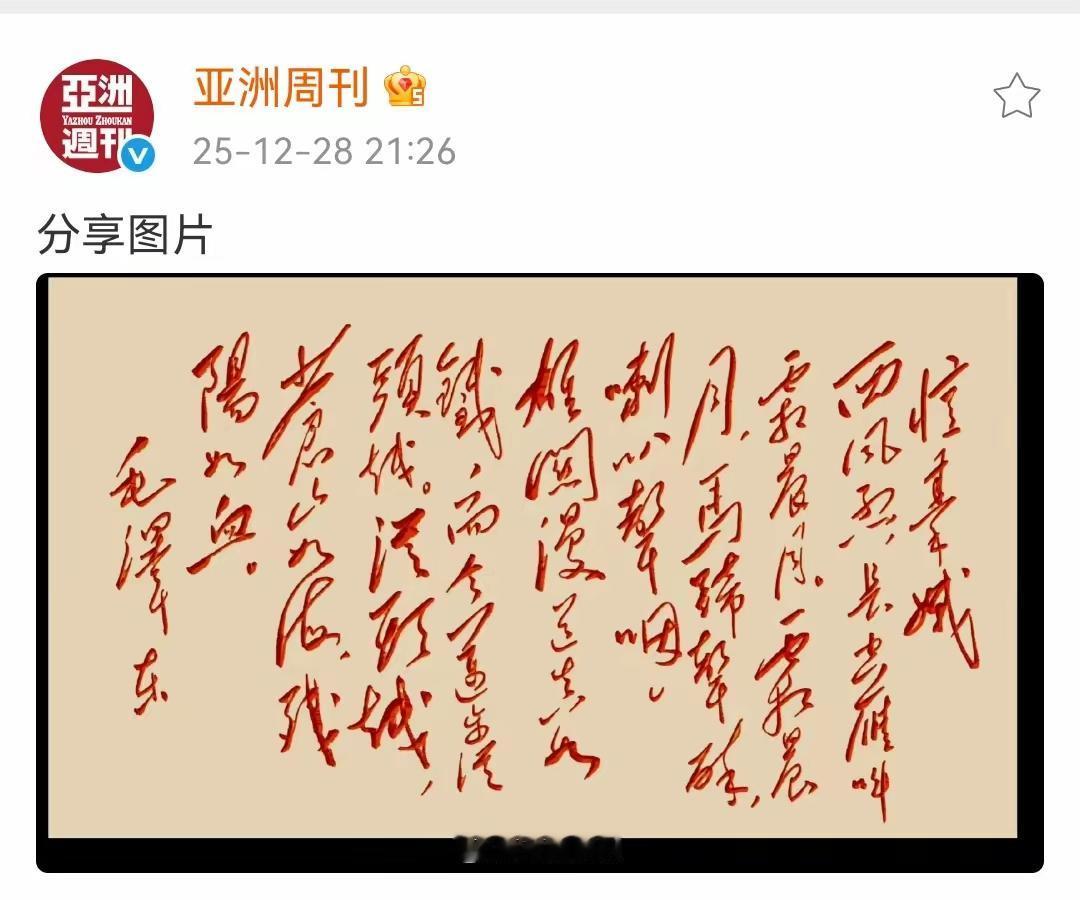 亞洲
YAZHOU ZHOUKAN
週刊
亚洲周刊
5
25-12-28 21:26
分享图片
憶秦娥
西风烈長空雁叫
霜晨月。霜晨
月,馬蹄聲碎,
喇叭聲咽。
雄関漫道真如
鐵,而今邁步從
頭越。從頭越,
蒼山如海,残
陽如血。
毛澤東